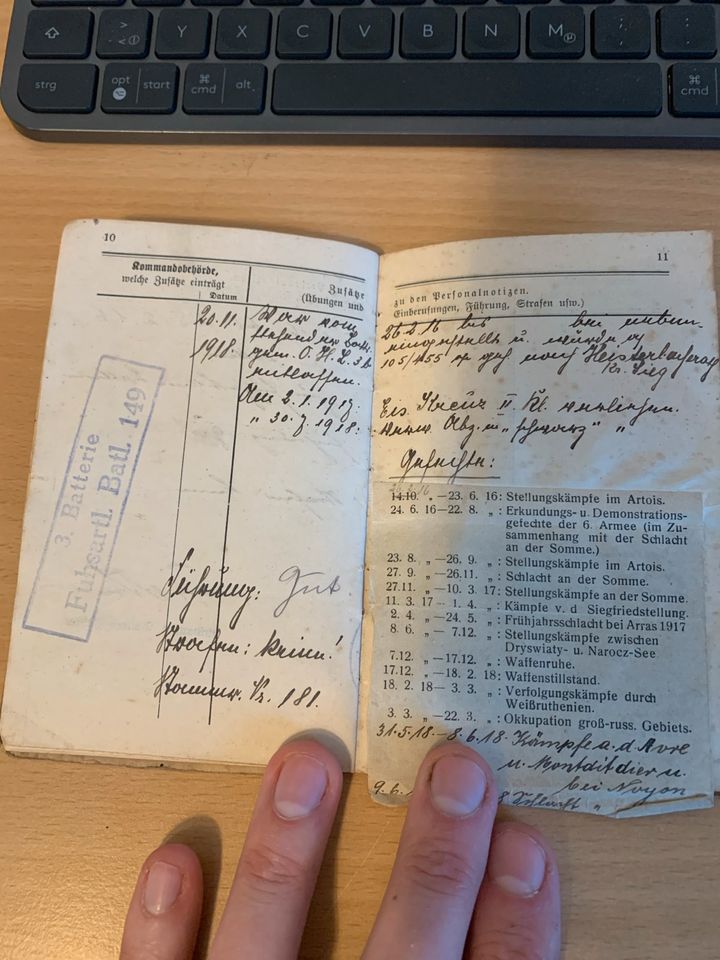 Y X C V B N M
strg opt start cmd alt cmd
10
Kommandobehörde,
welche Zusätze einträgt
Datum
Zusätze
(Übungen und
20.11.
1918.
gem. O. H. L.
entlassen.
Am 2. 1. 1917.
" 30. 7. 1918:
3. Batterie
Fußartl. Batl. 149
Führung: Gut.
Strafen: keine!
Stammr. Nr. 181.
11
zu den Personalnotizen.
Einberufungen, Führung, Strafen usw.)
26 2 16 bis bei
eingestellt u. wurde
105/455 nach Heisterbacherrott
Kr. Sieg
Eis. Kreuz II Kl. verliehen.
Verw. Abz. in "schwarz" "
Gefechte:
14.10. „ —23. 6. 16: Stellungskämpfe im Artois.
24. 6. 16—22. 8. „ : Erkundungs- u. Demonstrations-
gefechte der 6. Armee (im Zu-
sammenhang mit der Schlacht
an der Somme.)
23. 8. „ —26. 9. „ : Stellungskämpfe im Artois.
27. 9. „ —26.11. „ : Schlacht an der Somme.
27.11. „ —10. 3. 17: Stellungskämpfe an der Somme.
11. 3. 17 — 1. 4. „ : Kämpfe v. d Siegfriedstellung.
2. 4. „ —24. 5. „ : Frühjahrsschlacht bei Arras 1917
8. 6. „ — 7.12. „ : Stellungskämpfe zwischen
Dryswiaty- u. Narocz-See
7.12. „ —17.12. „ : Waffenruhe.
17.12. „ —18. 2. 18: Waffenstillstand.
18. 2. 18— 3. 3. „ : Verfolgungskämpfe durch
Weißruthenien.
3. 3. „ —22. 3. „ : Okkupation groß-russ. Gebiets.
31.5.18.—8.6.18. Kämpfe a. d Avre
u. Montdidier u.
bei Noyon
9.6. 8 Schlacht "